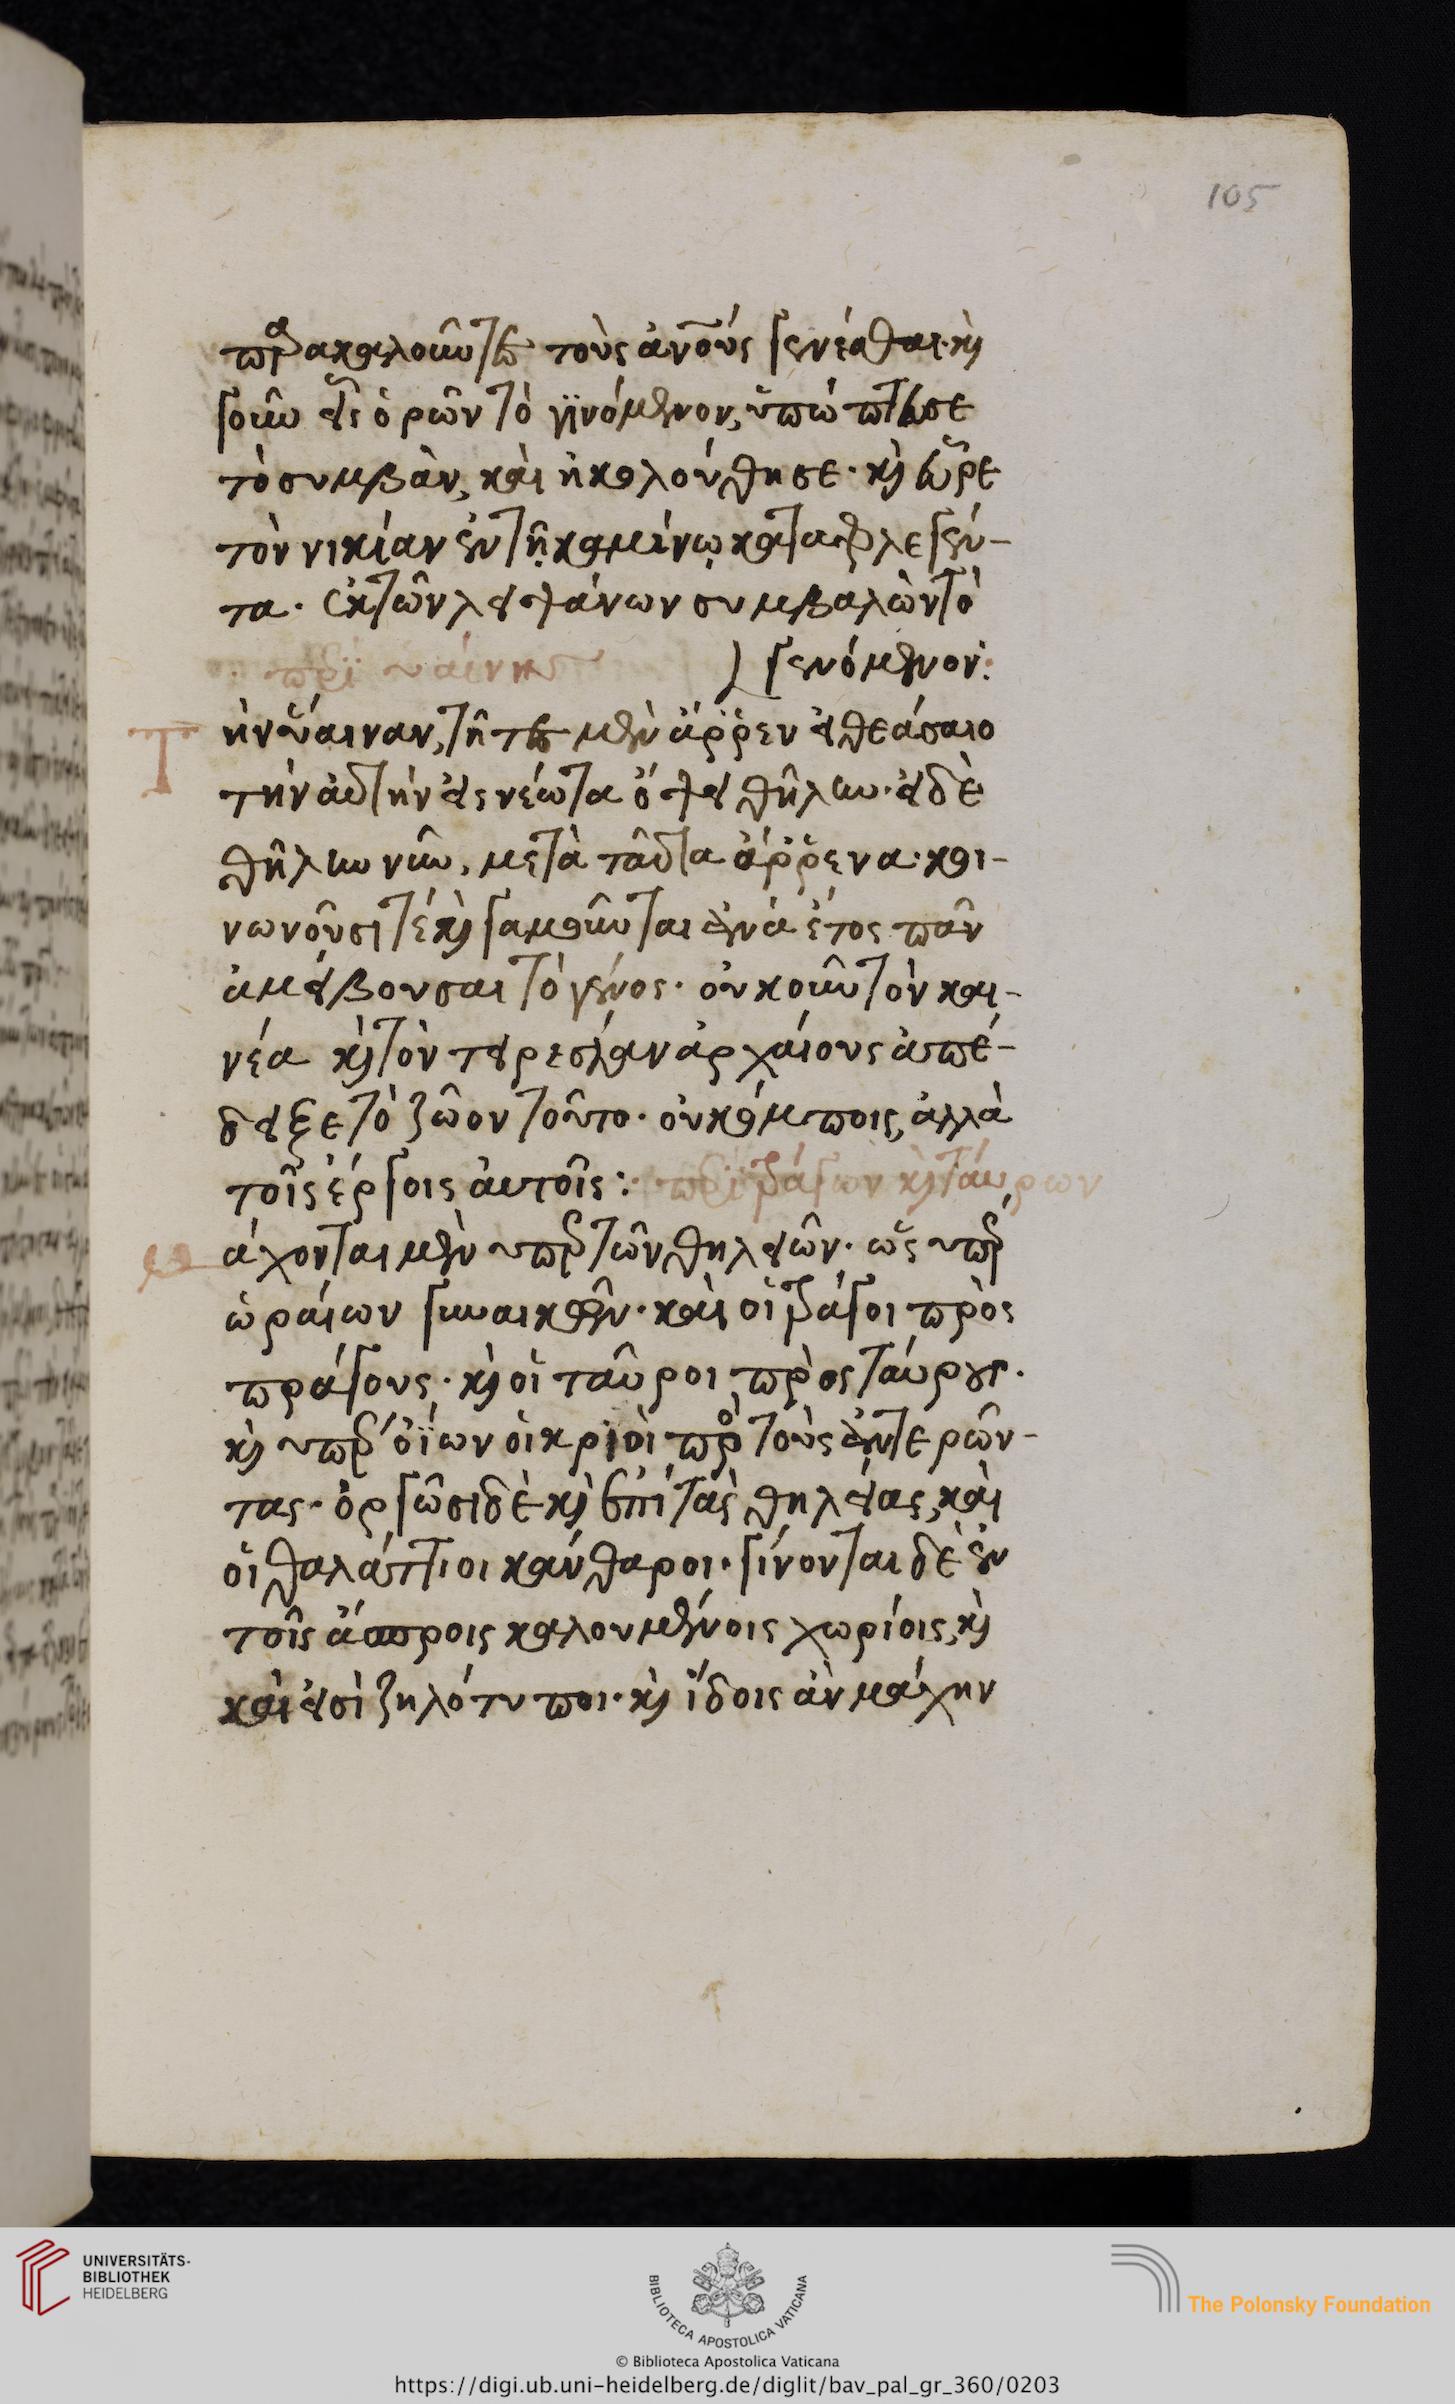 105
παρακαλοῦντες τοὺς ἀνους γενέσθαι· καὶ
γοῦν εἷς ὁρῶν τὸ γϊνόμενον, ὑπώπτευσε
τὸ συμβὰν, καὶ ἠκολούθησε· καὶ εὗρε
τὸν νικίαν ἐν τῆ καμίνω καταφλεγέν-
τα· ἐκ τῶν λειψάνων συμβαλὼν τὸ
γενόμενον:
περὶ ὑαίνης
Τ ὴν ὕαιναν, τῆτες μὲν ἄρρεν εἰ θεάσαιο
τὴν αὐτὴν εἰς νέωτα ὄψει θῆλυν· εἰ δὲ
θῆλυν νῦν, μετὰ ταῦτα ἄρρενα· κοι-
νωνοῦσι τέ καὶ γαμοῦνται ἀνά ἔτος πᾶν
ἀμείβουσαι τὸ γένος· οὐκοῦν τὸν και-
νέα καὶ τὸν τειρεσίαν ἀρχαίους ἀπέ-
δειξε τὸ ζῶον τοῦτο· οὐ κόμποις, ἀλλὰ
τοῖς ἔργοις αὐτοῖς: περὶ τράγων καὶ ταύρων
Μ άχονται μὲν ὑπὲρ τῶν θηλειῶν· ὡς ὑπὲρ
ὡραίων γυναικῶν· καὶ οἱ τράγοι πρὸς
τράγους· καὶ οἱ ταῦροι πρὸς ταύρους·
καὶ ὑπὲρ ὀΐων οἱ κριοὶ πρὸς τοὺς ἀντερῶν-
τας· ὀργῶσι δὲ καὶ ἐπὶ τὰς θηλείας, καὶ
οἱ θαλάττιοι κάνθαροι· γίνονται δὲ ἐν
τοῖς ἄσπροις καλουμένοις χωρίοις, καὶ
καὶ εἰσὶ ζηλότυποι· καὶ ἴδοις ἀν μάχην
UNIVERSITÄTS-
BIBLIOTHEK
HEIDELBERG
BIBLIOTECA APOSTOLICA VATICANA
The Polonsky Foundation
© Biblioteca Apostolica Vaticana
https://digi.ub.uni-heidelberg.de/diglit/bav_pal_gr_360/0203